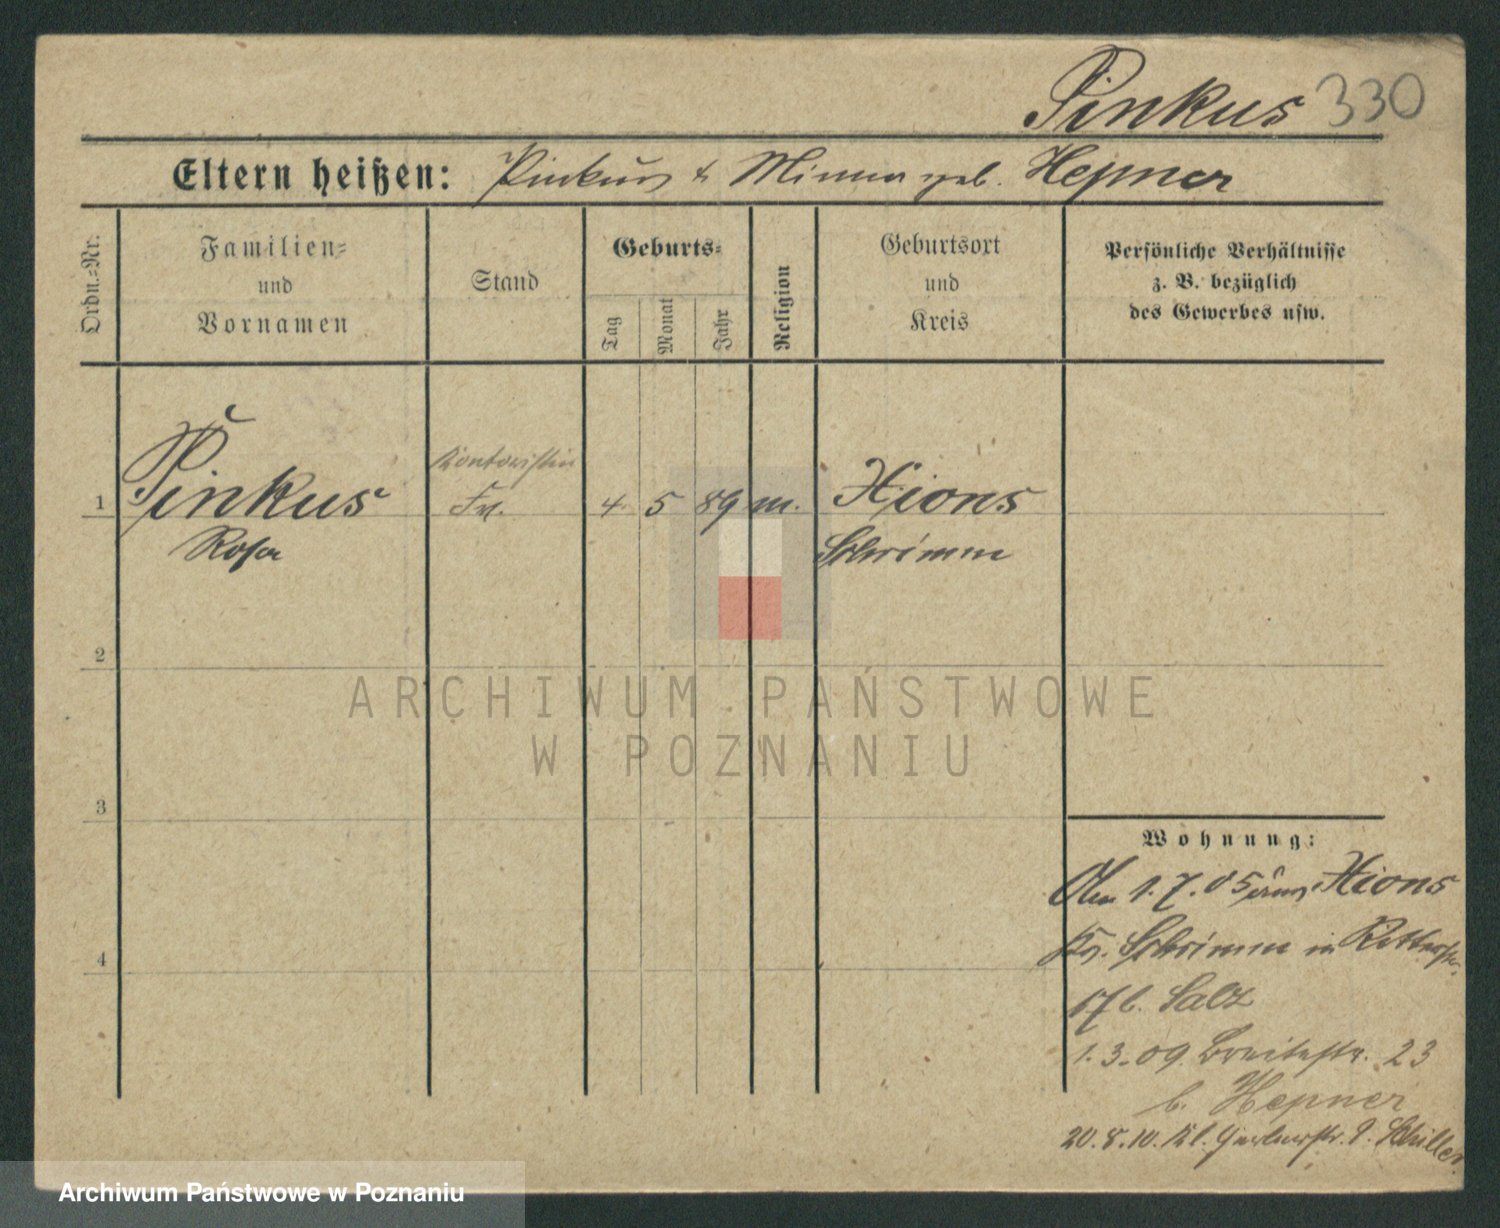 Pinkus 330
Eltern heißen: Pinkus & Minna geb. Hepner
Ordn.-Nr.
Familien-
und
Vornamen
Stand
Geburts-
Tag
Monat
Jahr
Religion
Geburtsort
und
Kreis
Persönliche Verhältnisse
z. B. bezüglich
des Gewerbes usw.
Kontoristin
1 Pinkus Frl. 4 5 89 m. Xions
Rosa Schrimm
2
ARCHIWUM PAŃSTWOWE
W POZNANIU
3
Wohnung:
Am 1.7.05 aus Xions
Kr. Schrimm in Ritterstr.
b. Salz
1.3.09. Breitestr. 23
b. Hepner
20.8.10. Kl. Gerberstr. 9.
Archiwum Państwowe w Poznaniu